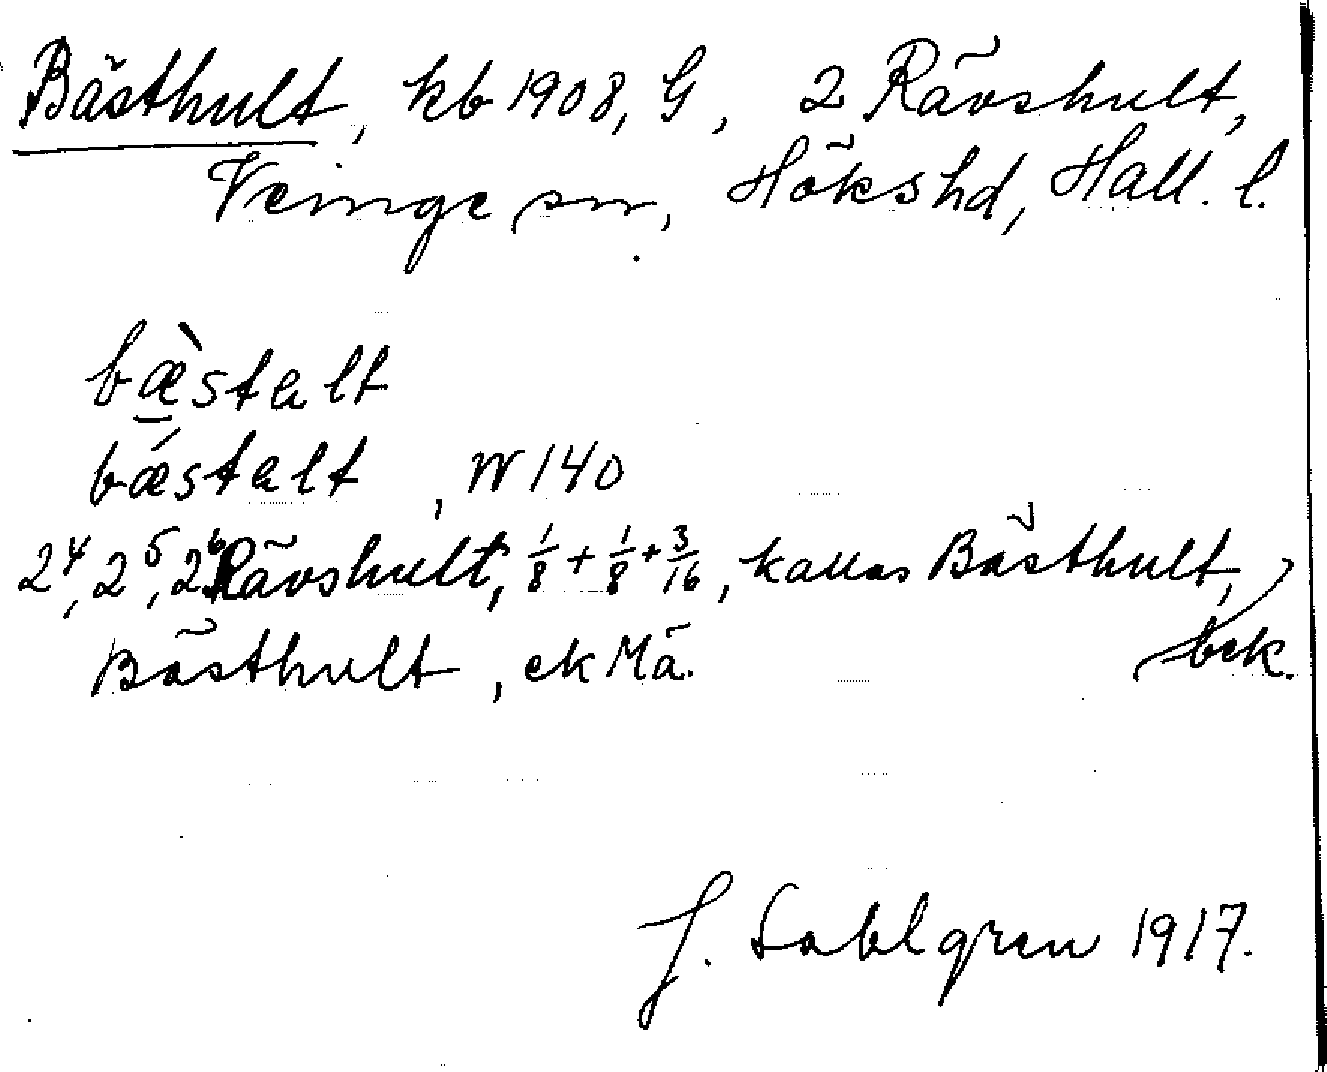 Bästhult, kb 1908, G, 2 Rävshult,
Veinge sn, Hökshd, Hall. l.
bæ̀stalt
bǽstalt, W 140
2⁴, 2⁵, 2⁶ Rävshult, 1/8 + 1/8 + 3/16, kallas Bästhult,
bek.
Bästhult, ek Mä.
J. Sahlgren 1917.